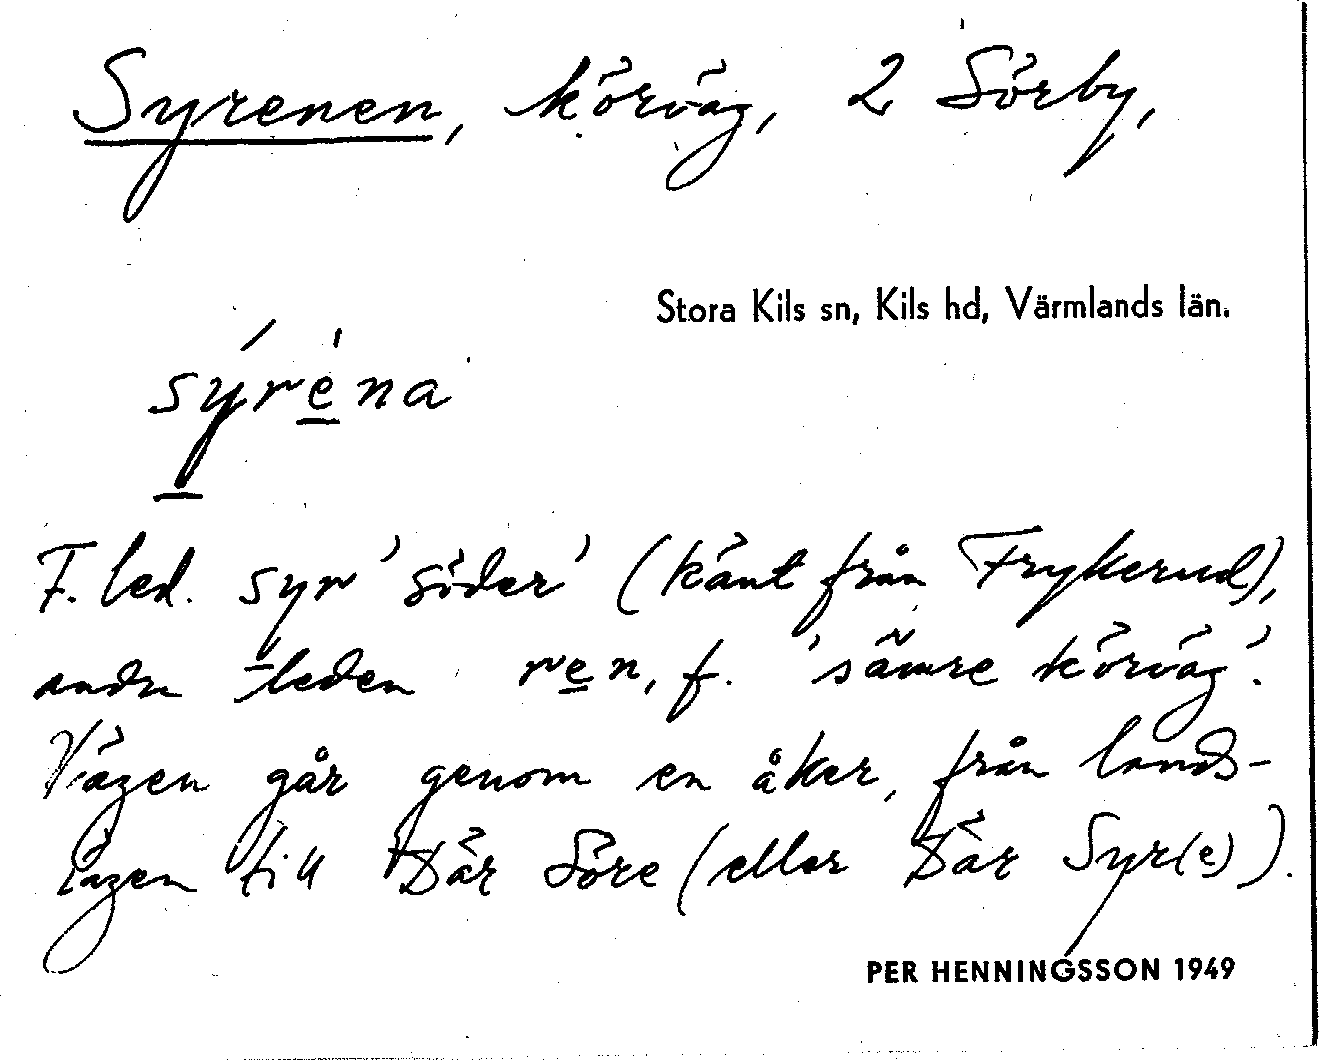 Syrenen, körväg, 2 Sörby,
Stora Kils sn, Kils hd, Värmlands län.
sýréna
F. led. syr 'söder' (känt från Frykerud),
andra leden ren, f. 'sämre körväg'.
Vägen går genom en åker, från lands-
vägen till Där Söre (eller Där Syr(e)).
PER HENNINGSSON 1949